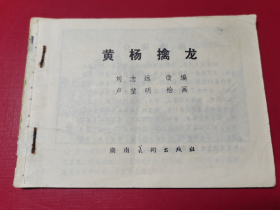 黄杨擒龙
刘志远 改编
卢望明 绘画
湖南美术出版社